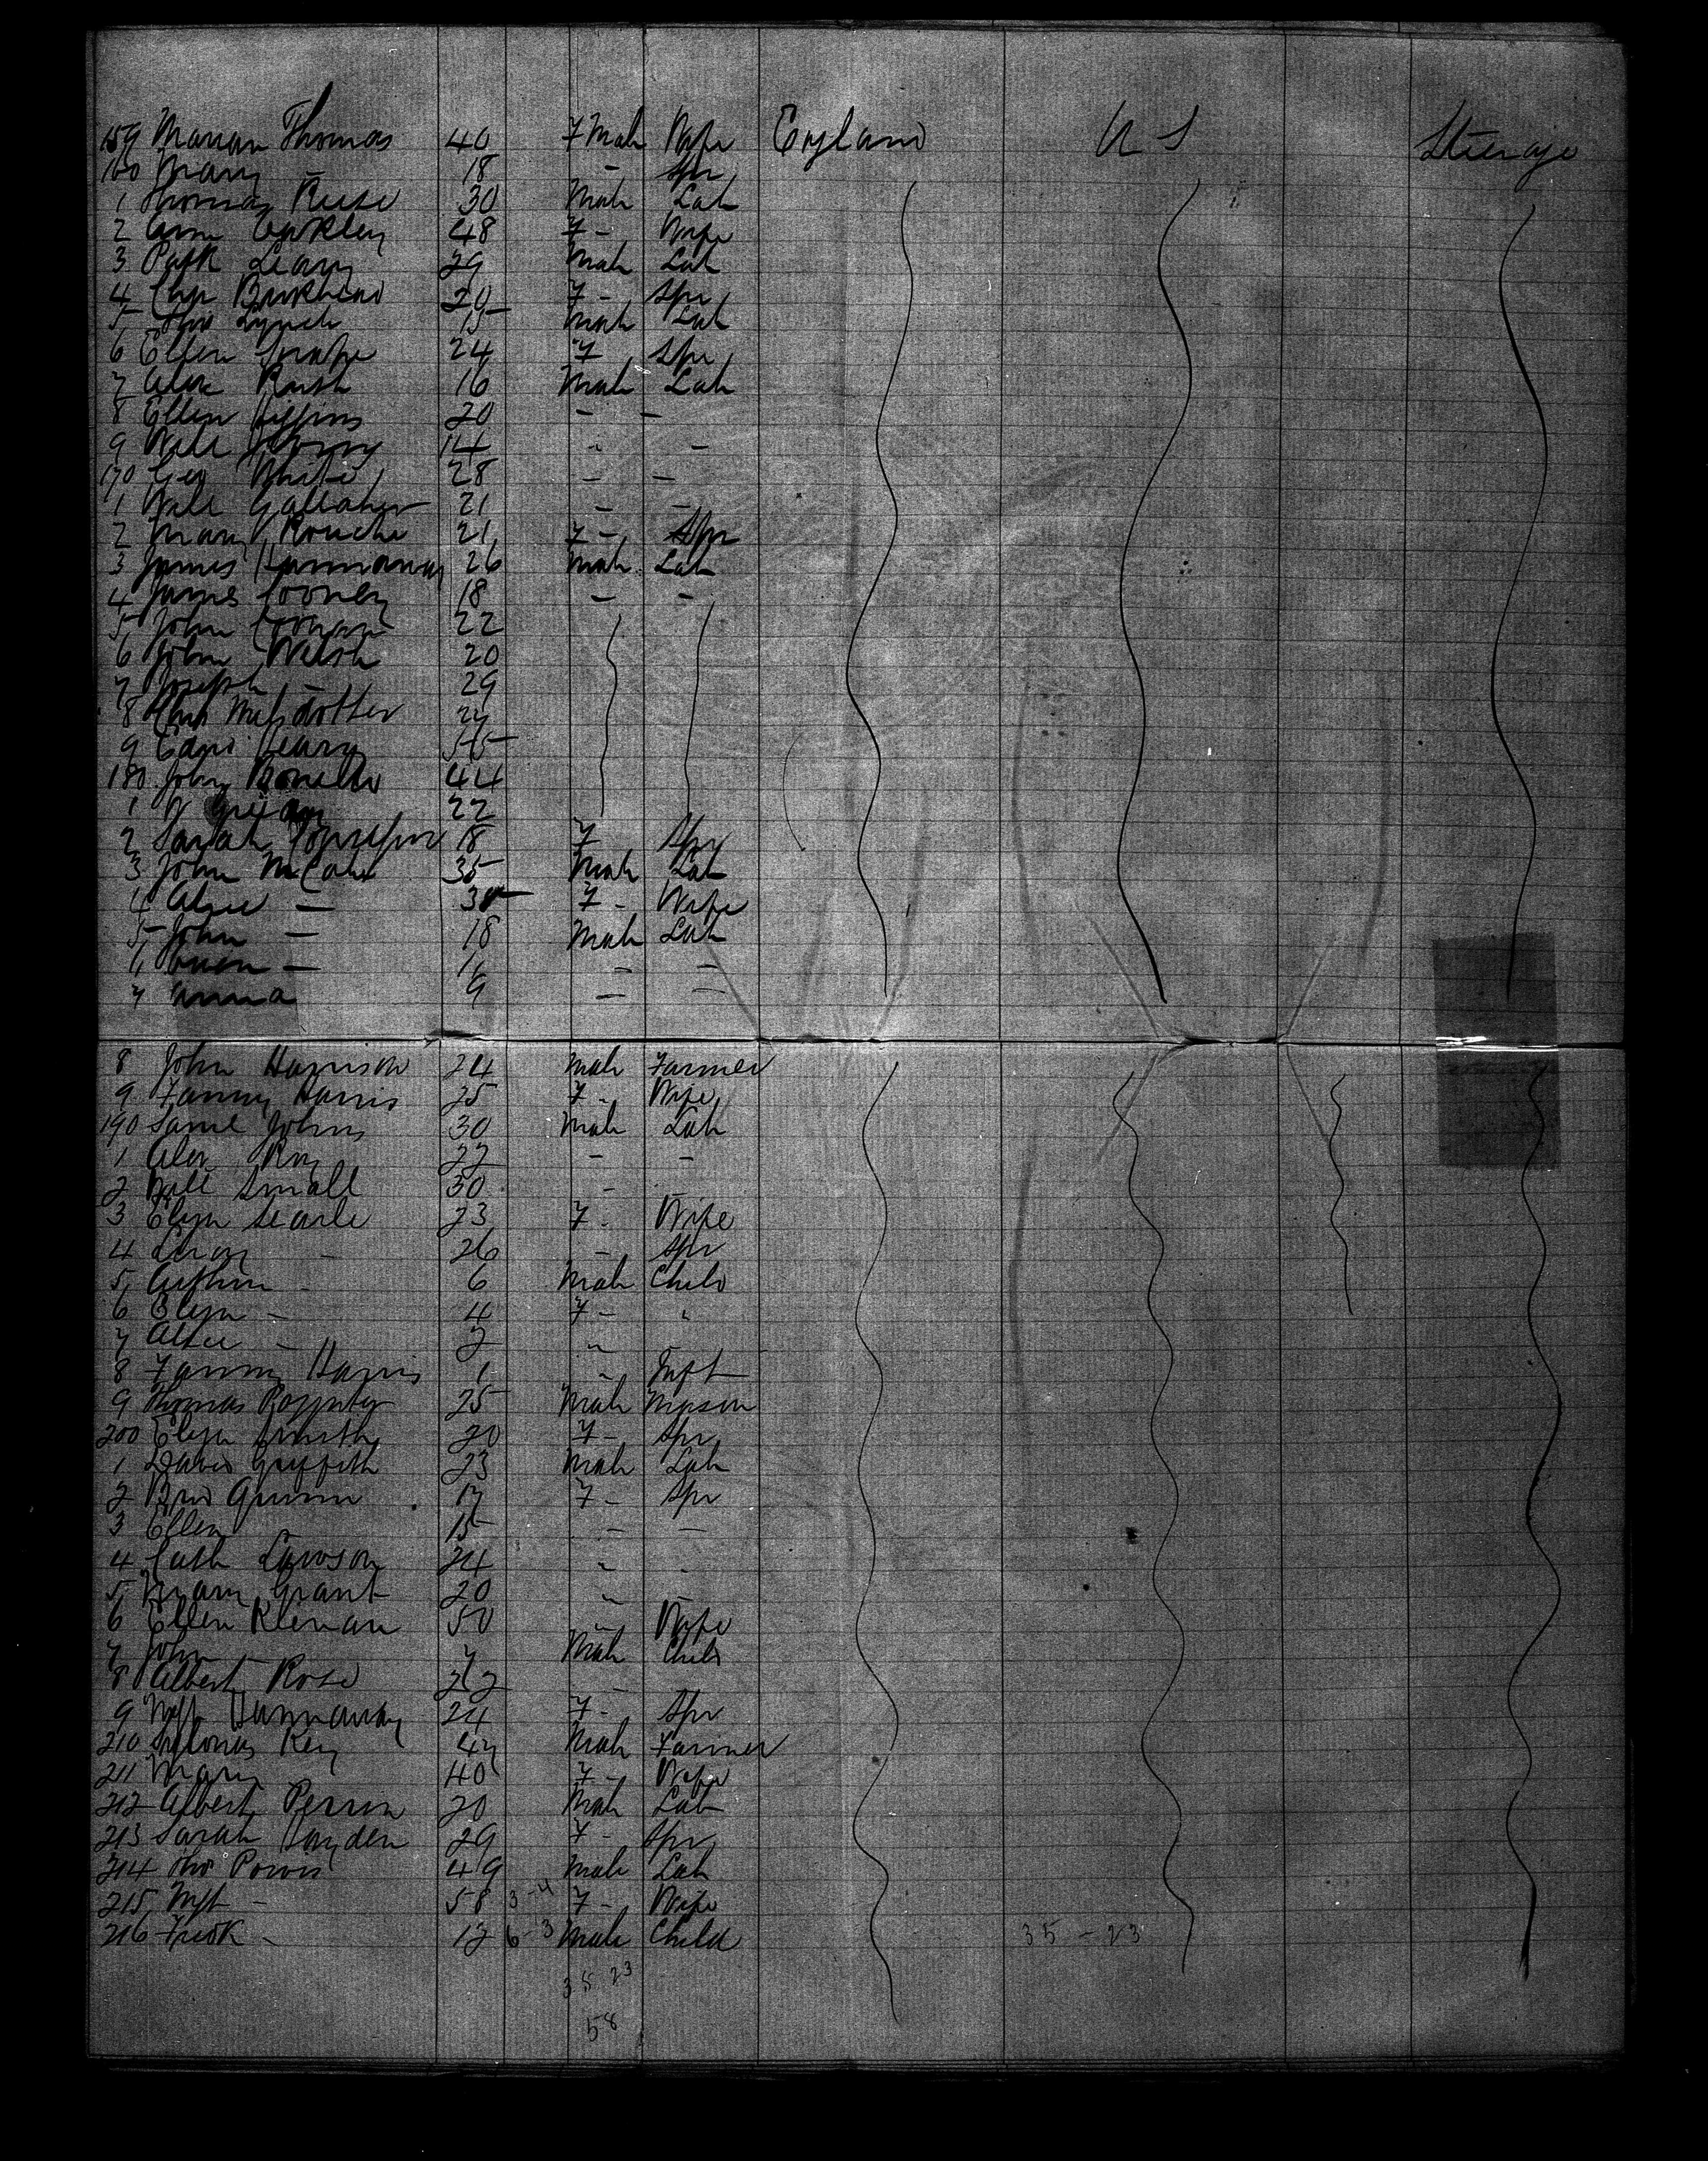 159 Marian Thomas 40 F Male Wife England U S Steerage
160 Mary - 18 - Spr
1 Thomas Reese 30 Male Lab
2 Ann 48 F - Wife
3 Patk Leary 29 Male Lab
4 20 F - Spr
5 Tho Lynch 15 Male Lab
6 Ellen 24 F Spr
7 Alex Rush 16 Male Lab
8 Ellen Higgins 20 - -
9 Will 14 - -
170 Geo White 28 - -
1 Will Gallaher 21 - -
2 Mary Rouche 21 F - Spr
3 James Hannaway 26 Male Lab
4 James Cooney 18 - -
5 John 22
6 John Welsh 20
7 Joseph - 29
8
9 Leary 55
180 John 44
1 22
2 Sarah 18 F Spr
3 John McCabe 35 Male Lab
4 Alice - F - Wife
5 John - 18 Male Lab
6 Owen - - -
7 Anna 9 - -
8 John Harrison 24 Male Farmer
9 Fanny Harris 25 F - Wife
190 Saml Johns 30 Male Lab
1 Alex 22 - -
2 Will Small 30 -
3 Eliza Searle 23 F - Wife
4 - 26 - Spr
5 Arthur - 6 Male Child
6 Eliza - 4 F - "
7 Alice - 2 "
8 Fanny Harris 1 - Inft
9 Thomas Poynter 25 Male Mason
200 Eliza Smith 20 F - Spr
1 David Griffith 23 Male Lab
2 17 F - Spr
3 Ellen 15 - -
4 Cath Lawson 24 " -
5 Mary Grant 20 " -
6 Ellen Kienan 50 - Wife
7 John 7 Male Child
8 Albert Rose 22 - -
9 Hannaway 24 F - Spr
210 Key 47 Male Farmer
211 Mary 40 F - Wife
212 Albert Perrin 20 Male Lab
213 Sarah Hayden 29 F - Spr
214 Tho Powis 49 Male Lab
215 - 58 3-4 F - Wife
216 Fredk - 12 6-3 Male Child 35 - 23
35 23
58